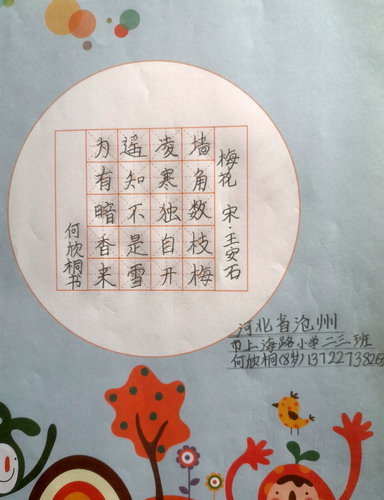 梅花 宋·王安石
墙角数枝梅
凌寒独自开
遥知不是雪
为有暗香来
何欣桐书
河北省沧州
市上海路小学二三班
何欣桐(8岁)13722738265